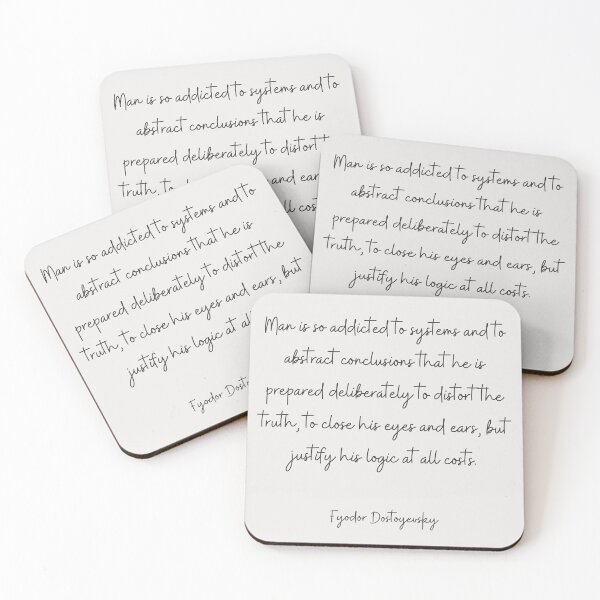 Man is so addicted to systems and to
abstract conclusions that he is
prepared deliberately to distort
truth, to and
Man is so addicted to systems and to
abstract conclusions that he is
prepared deliberately to distort the
truth, to close his eyes and ears, but
justify his logic at all costs.
Man is so addicted to systems and to
abstract conclusions that he is
prepared deliberately to distort the
truth, to close his eyes and ears, but
justify his logic at all
Fyodor
Man is so addicted to systems and to
abstract conclusions that he is
prepared deliberately to distort the
truth, to close his eyes and ears, but
justify his logic at all costs.
Fyodor Dostoyevsky